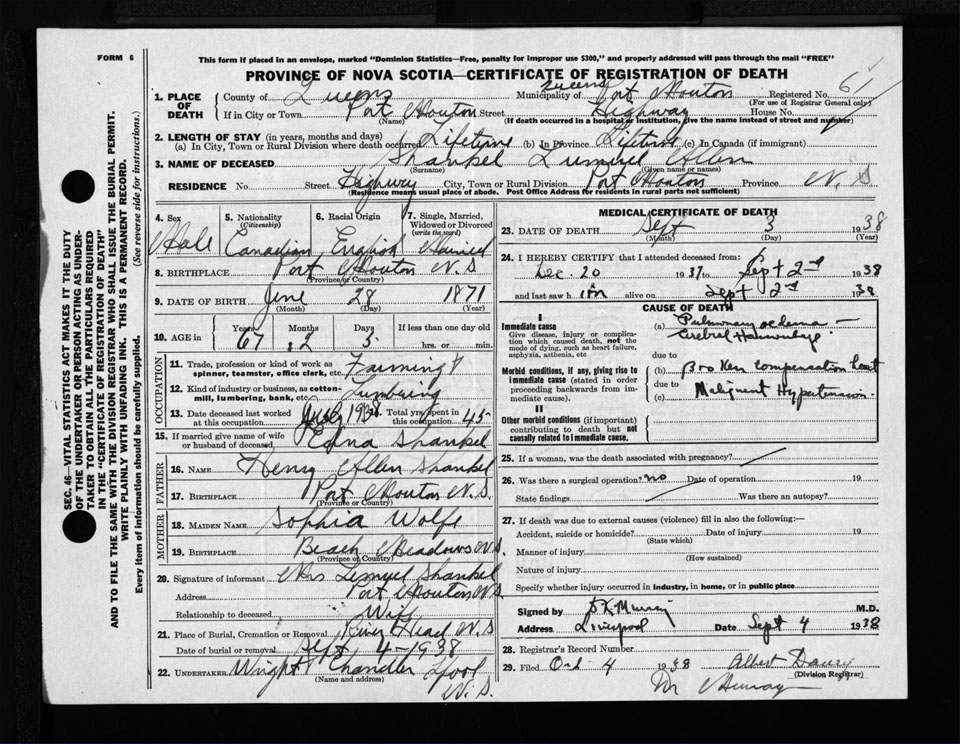 FORM 6
This form if placed in an envelope, marked "Dominion Statistics—Free, penalty for improper use $300," and properly addressed will pass through the mail "FREE"
PROVINCE OF NOVA SCOTIA—CERTIFICATE OF REGISTRATION OF DEATH
1. PLACE OF DEATH
County of Queens Municipality of Queens Port Mouton Registered No. 6
(For use of Registrar General only)
If in City or Town Port Mouton Street Highway House No.
(Name) (If death occurred in a hospital or institution, give the name instead of street and number)
2. LENGTH OF STAY (in years, months and days)
(a) In City, Town or Rural Division where death occurred Lifetime (b) In Province Lifetime (c) In Canada (if immigrant)
3. NAME OF DECEASED Shankel Lemuel Allen
(Surname) (Given name or names)
RESIDENCE No. Street Highway City, Town or Rural Division Port Mouton Province N. S
(Residence means usual place of abode. Post Office Address for residents in rural parts not sufficient)
4. Sex Male
5. Nationality (Citizenship) Canadian
6. Racial Origin English
7. Single, Married, Widowed or Divorced (write the word) Married
8. BIRTHPLACE Port Mouton N. S
(Province or Country)
9. DATE OF BIRTH June 28 1871
(Month) (Day) (Year)
10. AGE in Years Months Days If less than one day old
67 2 5 hrs. or min.
OCCUPATION
11. Trade, profession or kind of work as spinner, teamster, office clerk, etc. Farming &
12. Kind of industry or business, as cotton-mill, lumbering, bank, etc. Lumbering
13. Date deceased last worked at this occupation July 1938 Total yrs. spent in this occupation 45
15. If married give name of wife or husband of deceased Edna Shankel
FATHER
16. NAME Henry Allen Shankel
17. BIRTHPLACE Port Mouton N. S.
(Province or Country)
MOTHER
18. MAIDEN NAME Sophia Wolfe
19. BIRTHPLACE Beach Meadows N. S.
(Province or Country)
20. Signature of informant Mrs Lemuel Shankel
Address Port Mouton N. S
Relationship to deceased Wife
21. Place of Burial, Cremation or Removal River Head N. S
Date of burial or removal Sept 4-1938
22. UNDERTAKER Wright Chandler L'pool N. S.
(Name and address)
MEDICAL CERTIFICATE OF DEATH
23. DATE OF DEATH Sept 3 1938
(Month) (Day) (Year)
24. I HEREBY CERTIFY that I attended deceased from:
Dec. 20 1937 to Sept 2nd 1938
and last saw him alive on Sept 2nd 1938
CAUSE OF DEATH
I
Immediate cause
Give disease, injury or complication which caused death, not the mode of dying, such as heart failure, asphyxia, asthenia, etc
(a) Pulmonary oedema –
Cerebral Haemorrhage
due to
Morbid conditions, if any, giving rise to immediate cause (stated in order proceeding backwards from immediate cause).
(b) Broken compensation heart
due to
(c) Malignant Hypertension
II
Other morbid conditions (if important) contributing to death but not causally related to immediate cause.
25. If a woman, was the death associated with pregnancy?
26. Was there a surgical operation? no Date of operation 19
State findings Was there an autopsy?
27. If death was due to external causes (violence) fill in also the following:—
Accident, suicide or homicide? Date of injury 19
(State which)
Manner of injury
(How sustained)
Nature of injury
Specify whether injury occurred in industry, in home, or in public place
Signed by Murray M.D.
Address Liverpool Date Sept 4 1938
28. Registrar's Record Number
29. Filed Oct 4 1938 Albert
(Division Registrar)
Murray
SEC. 46—VITAL STATISTICS ACT MAKES IT THE DUTY
OF THE UNDERTAKER OR PERSON ACTING AS UNDER-
TAKER TO OBTAIN ALL THE PARTICULARS REQUIRED
IN THE "CERTIFICATE OF REGISTRATION OF DEATH"
AND TO FILE THE SAME WITH THE DIVISION REGISTRAR WHO SHALL ISSUE THE BURIAL PERMIT.
WRITE PLAINLY WITH UNFADING INK. THIS IS A PERMANENT RECORD.
Every item of information should be carefully supplied. (See reverse side for instructions.)